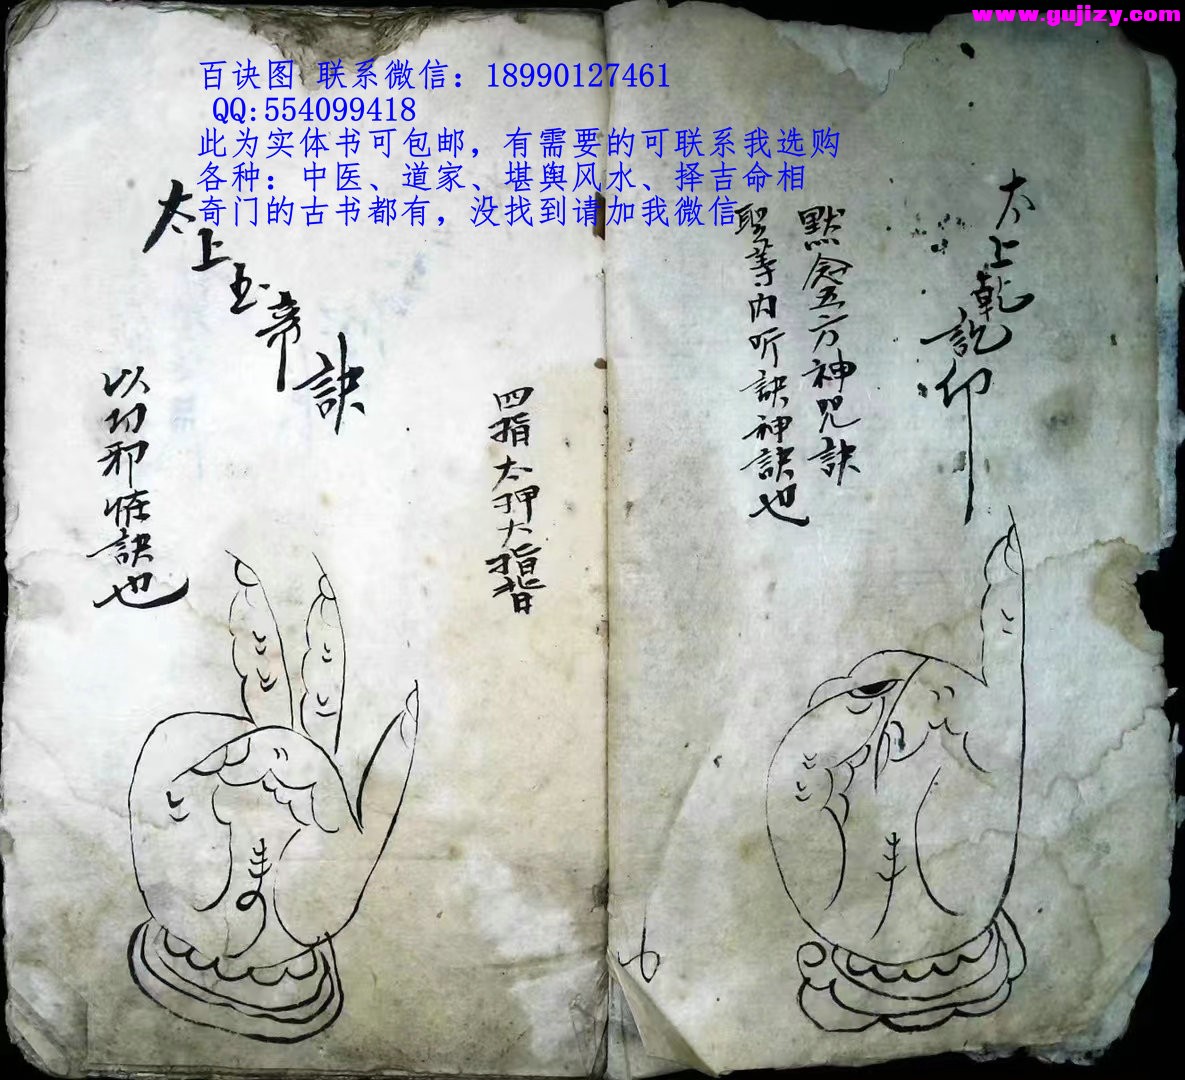 www.gujizy.com
百诀图 联系微信：18990127461
QQ:554099418
此为实体书可包邮，有需要的可联系我选购
各种：中医、道家、堪舆风水、择吉命相
奇门的古书都有，没找到请加我微信
太上乾訖印
默念五方神咒訣
聖等内听訣神訣也
四指太押大指背
太上玉帝訣
以切邪怪訣也